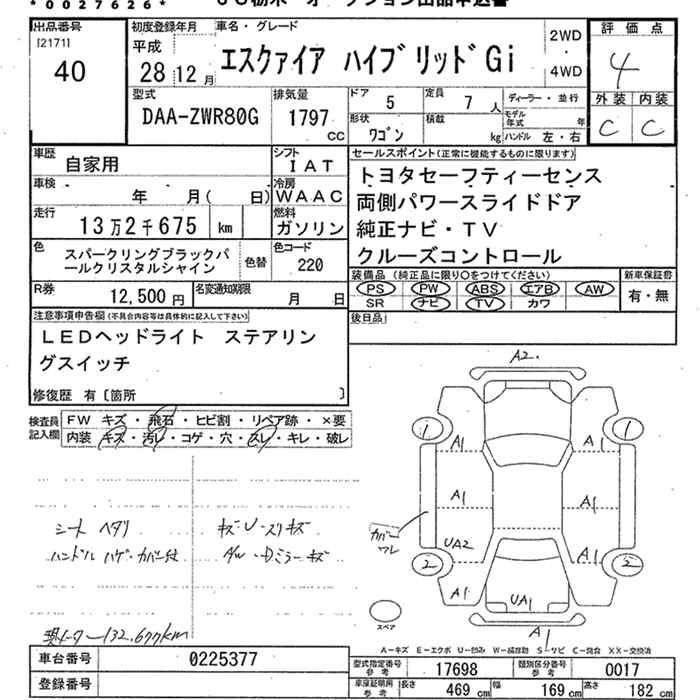 * 0 0 2 7 6 2 6 *
出品番号
[2171]
40
初度登録年月
平成
28年12月
車名・グレード
エスクァイア ハイブリッドGi
2WD
・
4WD
評価点
4
外装 内装
C C
型式
DAA-ZWR80G
排気量
1797
CC
ドア
5
定員
7 人
形状
ワゴン
積載
kg
ディーラー・並行
モデル年式 年
ハンドル 左・右
車歴
自家用
シフト
IAT
車検
年 月( 日)
冷房
WAAC
走行
13万2千675 km
燃料
ガソリン
色
スパークリングブラックパ
ールクリスタルシャイン
色替
色コード
220
R券
12,500円
名変通知期限
月 日
セールスポイント(正常に機能するものに限ります)
トヨタセーフティーセンス
両側パワースライドドア
純正ナビ・TV
クルーズコントロール
装備品 (純正品に限り○をつけてください)
PS PW ABS エアB AW
SR ナビ TV カワ
新車保証書
有・無
後日品
注意事項申告欄(不具合内容等は具体的に記入して下さい)
LEDヘッドライト ステアリン
グスイッチ
修復歴 有〔箇所 〕
検査員
記入欄
FW キズ・飛石・ヒビ割・リペア跡・×要
内装 キズ・汚レ・コゲ・穴・スレ・キレ・破レ
シート ヘタリ
ハンドル ハゲ・カバー付
キズ・U・スリキズ
A/W・Dミラーキズ
現メーター132,677km
A2
1
1
A1
A
A1
A1
UA2
A1
2
2
A1
A1
UA1
A1
カバーワレ
スペア
A-キズ E-エクボ U-凹み W-補修跡 S-サビ C-腐食 XX-交換済
車台番号
0225377
登録番号
型式指定番号
参考
17698
類別区分番号
参考
0017
車庫証明用
参考
長さ 469 cm
幅 169 cm
高さ 182 cm